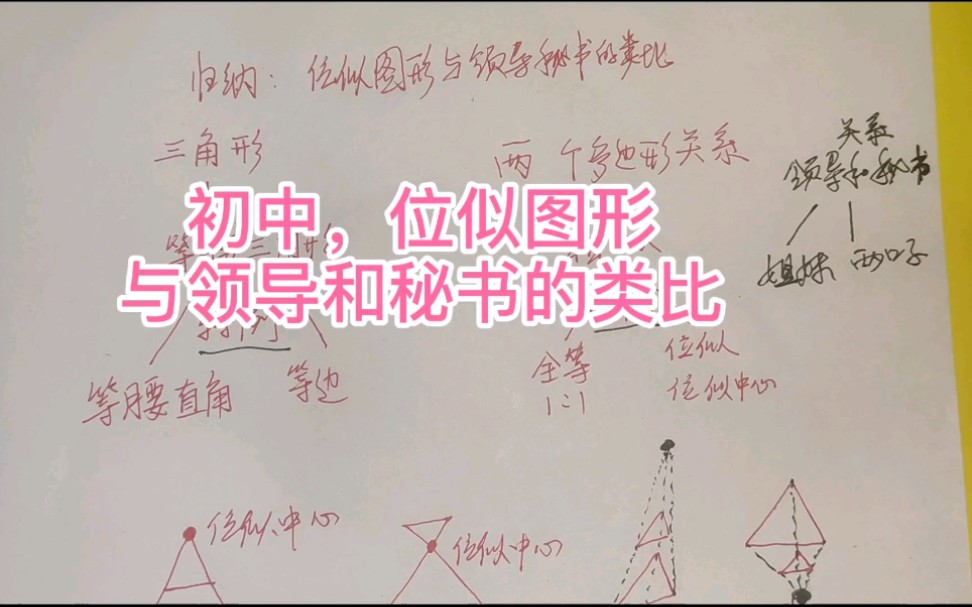 归纳：位似图形与领导秘书的类比
三角形
两个多边形关系
关系
领导和秘书
姐妹 两口子
初中，位似图形
与领导和秘书的类比
等腰直角
等边
全等
1:1
位似
位似中心
位似中心
位似中心